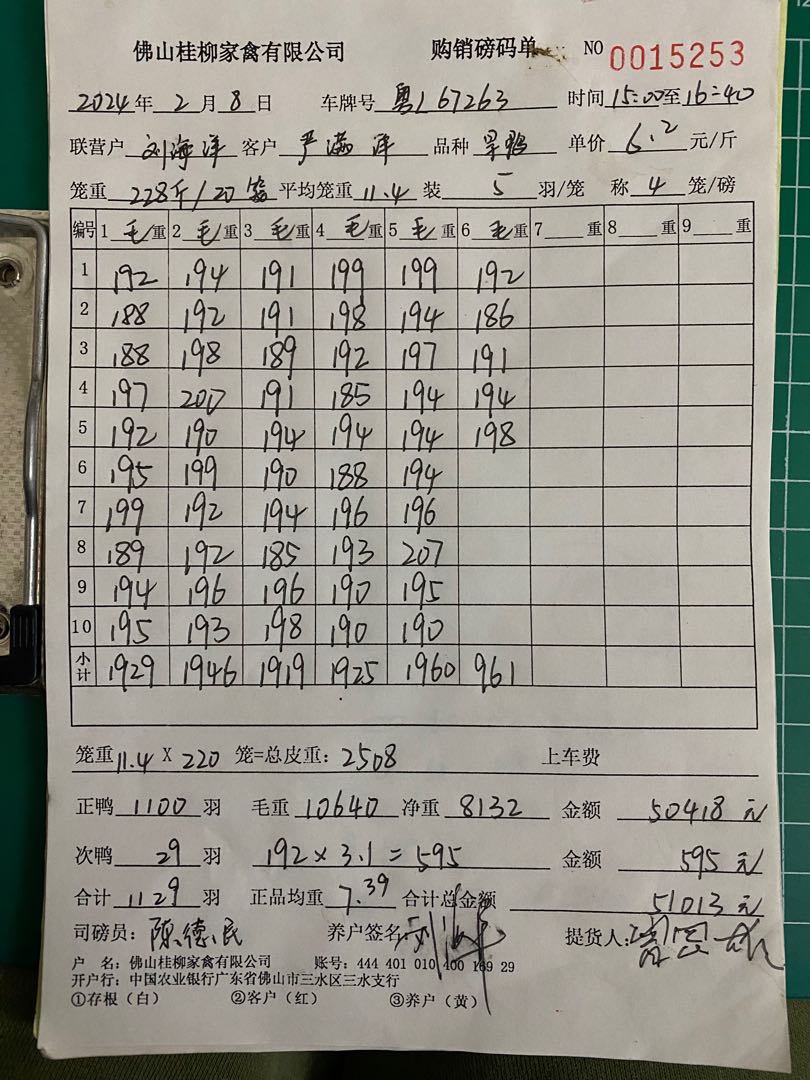 佛山桂柳家禽有限公司 购销磅码单 NO 0015253
2024年 2月 8日 车牌号 粤L67263 时间 15:00至16:40
联营户 刘海洋 客户 严满洋 品种 旱鸭 单价 6.2 元/斤
笼重 228斤/20笼 平均笼重 11.4 装 5 羽/笼 称 4 笼/磅
编号 1 毛重 2 毛重 3 毛重 4 毛重 5 毛重 6 毛重 7 重 8 重 9 重
1 192 194 191 199 199 192
2 188 192 191 198 194 186
3 188 198 189 192 197 191
4 197 200 191 185 194 194
5 192 190 194 194 194 198
6 195 199 190 188 194
7 199 192 194 196 196
8 189 192 185 193 207
9 194 196 196 190 195
10 195 193 198 190 190
小计 1929 1946 1919 1925 1960 961
笼重 11.4 X 220 笼=总皮重: 2508 上车费
正鸭 1100 羽 毛重 10640 净重 8132 金额 50418元
次鸭 29 羽 192×3.1=595 金额 595元
合计 1129 羽 正品均重 7.39 合计总金额 51013元
司磅员: 陈德民 养户签名 提货人:
户 名: 佛山桂柳家禽有限公司 账号: 444 401 010 400 169 29
开户行: 中国农业银行广东省佛山市三水区三水支行
①存根（白） ②客户（红） ③养户（黄）